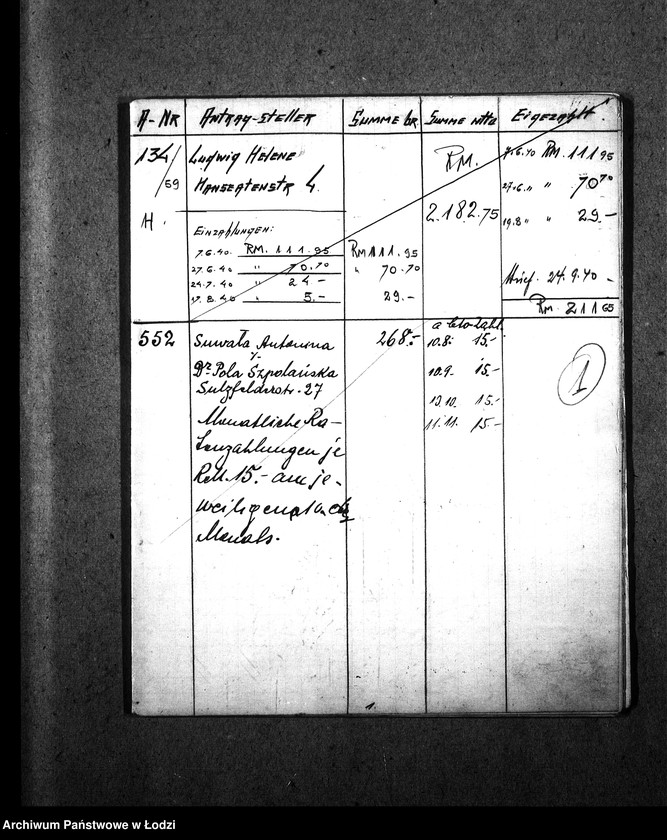 A-Nr Antrag-steller Summe br Summe ntto Eigezahlt.
134/59 Ludwig Helene RM. 7.6.40 RM. 111 95
Hansegtenstr 4. 27.6. " " 70 70
H. 2.182.75 19.8 " " 29.-
Einzahlungen:
7.6.40. RM. 111.95 RM 111.95
27.6.40 " 70.70 " 70.70
24.7.40 " 24.-
17.8.40 " 5.- 29.- 24.9.40 -
RM 211 65
552 Suwała Antonina 268.- 10.8. 15.-
Dr. Pola Szpolańska 10.9. 15.-
Sulzfelderstr. 27
Monatliche Ra- 10.10. 15.-
tenzahlungen je 11.11. 15-
RM. 15.- am je-
weiligen
Monats.
1
1.
Archiwum Państwowe w Łodzi